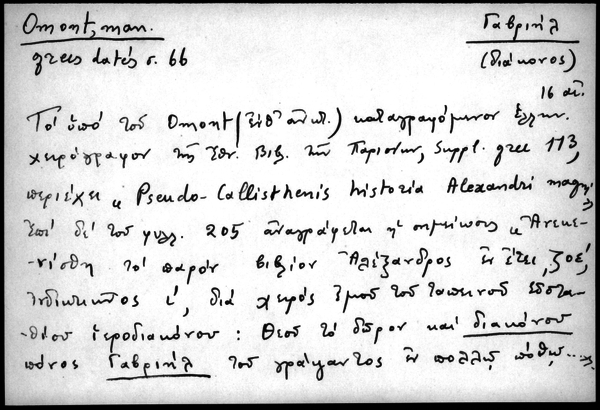 Omont, man. Γαβριήλ
grecs datés σ. 66 (διάκονος)
16 αἰ.
Τό ὑπό τοῦ Omont (ἔνθ' ἀνωτ.) καταγραφόμενον ἑλλην.
χειρόγραφον τῆς Ἐθν. Βιβ. τῶν Παρισίων, Suppl. grec 113,
περιέχει « Pseudo-Callisthenis historia Alexandri magni »
Ἐπί δέ τοῦ φυλλ. 205 ἀναγράφεται ἡ σημείωσις « Ἀνεκε-
-νίσθη τό παρόν βιβλίον Ἀλέξανδρος ἐν ἔτει ͵ζοέ,
ἰνδικτιῶνος ί, διά χειρός ἐμοῦ τοῦ ταπεινοῦ Εὐστα-
-θίου ἱεροδιακόνου : Θεοῦ τό δῶρον καί διακόνου
πόνος Γαβριήλ τοῦ γράψαντος ἐν πολλῷ πόθῳ...»